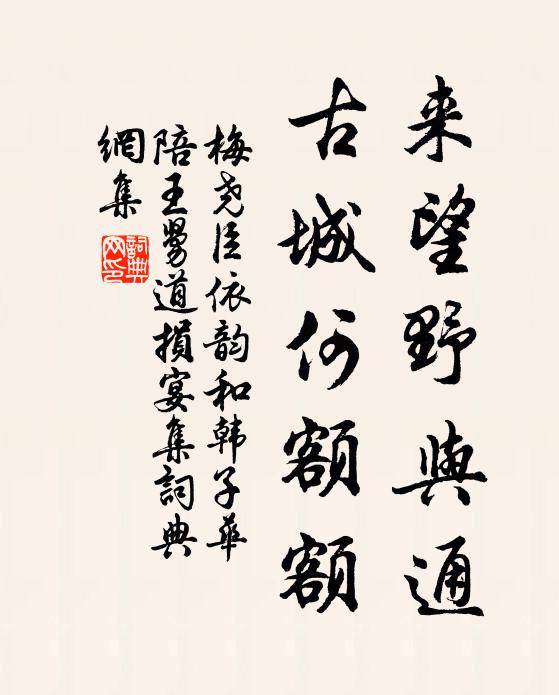 来望野與通
古城何額額
梅尧臣依韵和韩子華
陪王舅道損宴集詞典
網集
詞典網印